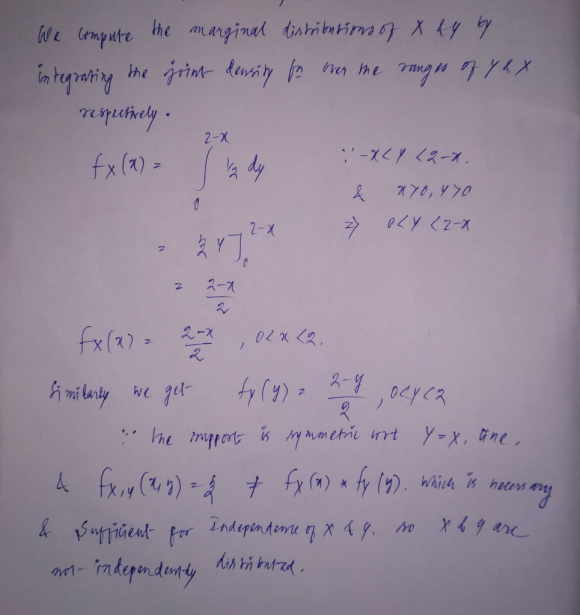 We compute the marginal distributions of X & Y by
integrating the joint density fn over the ranges of Y & X
respectively.
f_X(x) = ∫_0^{2-x} 1/2 dy ∵ -x<Y<2-x.
& x>0, Y>0
= 1/2 Y]_0^{2-x} ⇒ 0<Y<2-x
= (2-x)/2
f_X(x) = (2-x)/2 , 0<x<2.
Similarly we get f_Y(y) = (2-y)/2 , 0<y<2
∵ the support is symmetric wrt Y=X, line,
& f_{X,Y}(x,y) = 1/2 ≠ f_X(x) * f_Y(y). which is necessary
& Sufficient for Independence of X & Y. so X & Y are
not-independently distributed.